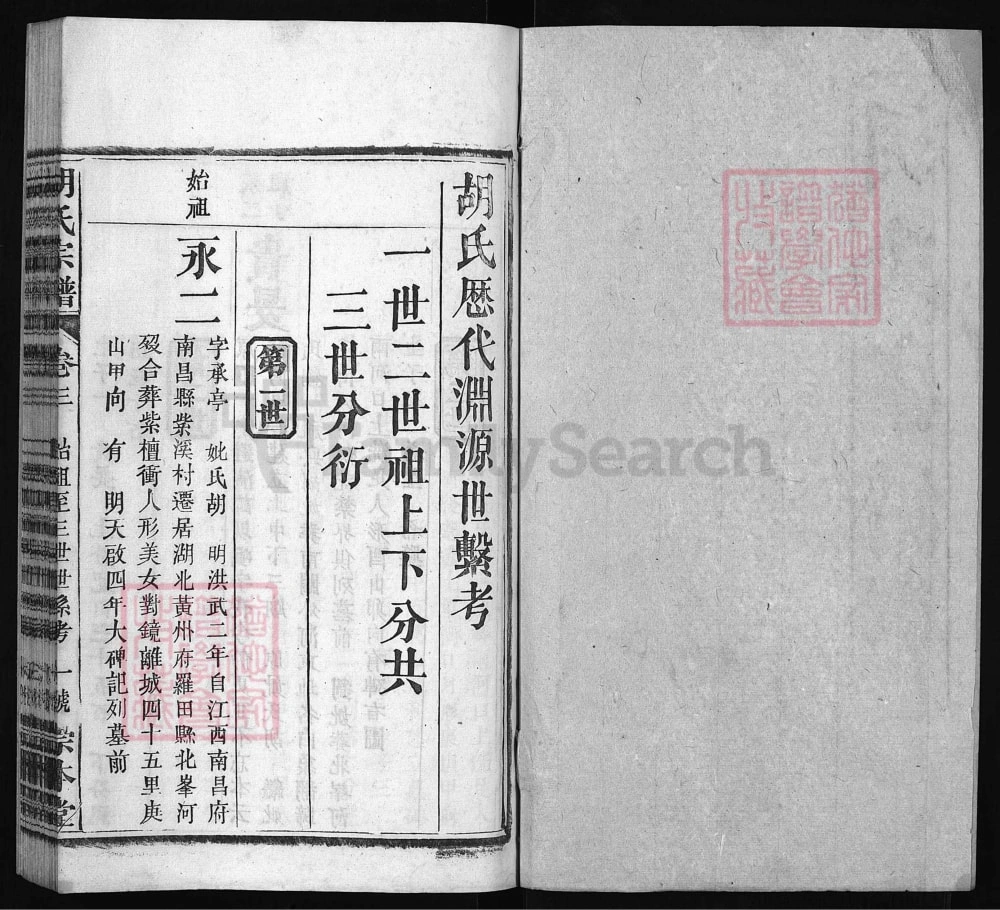 譜學會
收藏
胡氏歷代淵源世繫考
一世二世祖上下分共
三世分衍
第一世
始祖
永二
字承亭 妣氏胡 明洪武二年自江西南昌府
南昌縣柴溪村遷居湖北黃州府羅田縣北峯河
歿合葬紫檀衝人形美女對鏡離城四十五里庚
山甲向 有 明天啟四年大碑記列墓前
胡氏宗譜 卷三 始祖至三世世系考 一號 宗本堂
FamilySearch